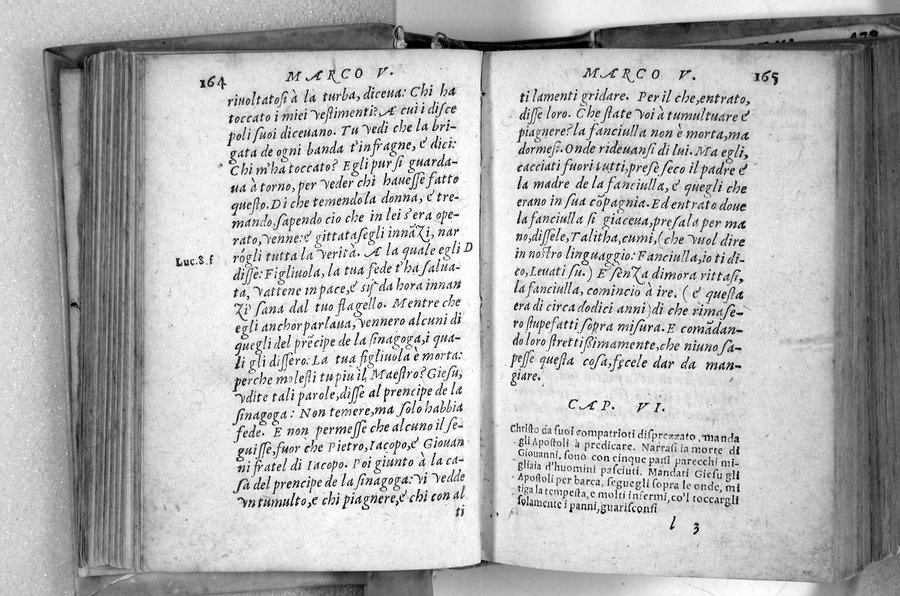 164
MARCO V.
riuoltatosi à la turba, diceua: Chi ha
toccato i miei vestimenti? A cui i disce
poli suoi diceuano. Tu vedi che la bri-
gata de ogni banda t'infragne, e dici:
Chi m'ha toccato? Egli pur si guarda-
ua à torno, per veder chi hauesse fatto
questo. Di che temendo la donna, e tre-
mando, sapendo cio che in lei s'era ope-
rato, venne: e gittatasegli innãzi, nar
rogli tutta la verità. A la quale egli D
Luc. 8. f
disse: Figliuola, la tua fede t'ha salua-
ta, vattene in pace, e sij da hora innan
zi sana dal tuo flagello. Mentre che
egli anchor parlaua, vennero alcuni di
quegli del prẽcipe de la sinagoga, i qua-
li gli dissero: La tua figliuola è morta:
perche molesti tu piu il Maestro? Giesu,
vdite tali parole, disse al prencipe de la
sinagoga: Non temere, ma solo habbia
fede. E non permesse che alcuno il se-
guisse, fuor che Pietro, Iacopo, e Giouan
ni fratel di Iacopo. Poi giunto à la ca-
sa del prencipe de la sinagoga: vi vedde
vn tumulto, e chi piagnere, e chi con al
ti
MARCO V.
165
ti lamenti gridare. Per il che, entrato,
disse loro. Che state voi à tumultuare e
piagnere? la fanciulla non è morta, ma
dorme si. Onde rideuansi di lui. Ma egli,
cacciati fuori tutti, prese seco il padre e
la madre de la fanciulla, e quegli che
erano in sua cõpagnia. Ed entrato doue
la fanciulla si giaceua, presala per ma
no, dissele, Talitha, cumi, (che vuol dire
in nostro linguaggio: Fanciulla, io ti di-
co, Leuati su.) E senza dimora rittasi,
la fanciulla, cominciò à ire. (e questa
era di circa dodici anni) di che rimase-
ro stupefatti sopra misura. E comãdan-
do loro strettissimamente, che niuno sa-
pesse questa cosa, fecele dar da man-
giare.
CAP. VI.
Christo da suoi compatrioti disprezzato, manda
gli Apostoli à predicare. Narrasi la morte di
Giouanni, sono con cinque pani parecchi mi-
gliaia d'huomini pasciuti. Mandati Giesu gli
Apostoli per barca, seguegli sopra le onde, mi
tiga la tempesta, e molti infermi, co'l toccargli
solamente i panni, guarisconsi
l 3